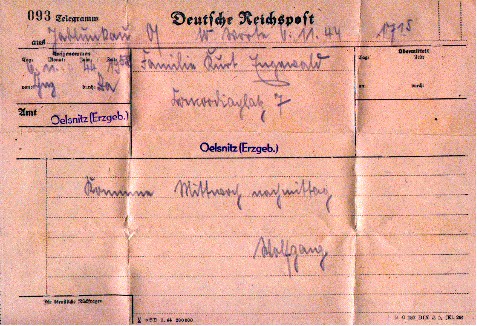 093 Telegramm Deutsche Reichspost
aus Jablunkau 9/ W Worte 6.11.44 1715
Aufgenommen Übermittelt
Tag: Monat: Jahr: Zeit:
6 11 44
von: durch:
Familie Kurt Ingewald
Concordiaplatz 7
Amt Oelsnitz (Erzgeb.)
Oelsnitz (Erzgeb.)
Komme Mittwoch nachmittag
Wolfgang
Für dienstliche Rückfragen